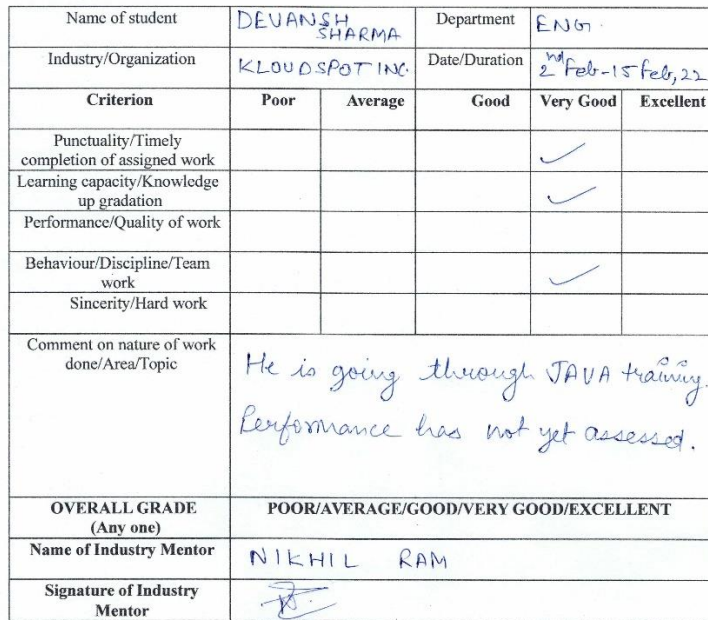 Name of student DEVANSH SHARMA Department ENG.
Industry/Organization KLOUDSPOT INC. Date/Duration 2nd Feb-15 Feb, 22
Criterion Poor Average Good Very Good Excellent
Punctuality/Timely
completion of assigned work
Learning capacity/Knowledge
up gradation
Performance/Quality of work
Behaviour/Discipline/Team
work
Sincerity/Hard work
Comment on nature of work
done/Area/Topic
He is going through JAVA training.
Performance has not yet assessed.
OVERALL GRADE
(Any one)
POOR/AVERAGE/GOOD/VERY GOOD/EXCELLENT
Name of Industry Mentor NIKHIL RAM
Signature of Industry
Mentor